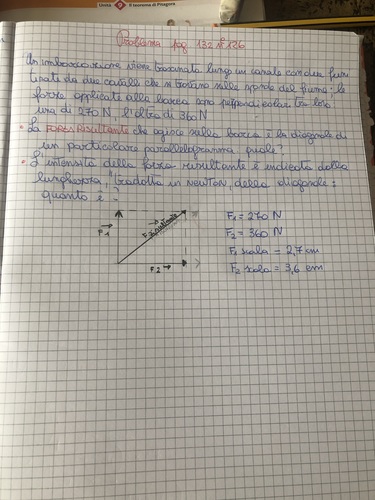 Unità 9 Il teorema di Pitagora
Problema pag 132 n°126
Un'imbarcazione viene trascinata lungo un canale con due funi
tirate da due cavalli che si trovano sulle sponde del fiume; le
forze applicate alla barca sono perpendicolari tra loro
una di 270 N, l'altra di 360 N
• La FORZA RISULTANTE che agisce sulla barca è la diagonale di
un particolare parallelogramma quale?
• L'intensità della forza risultante è indicata dalla
lunghezza, "tradotta in newton, della diagonale:
quanto è?
F1
F risultante
F2
F1 = 270 N
F2 = 360 N
F1 scala = 2,7 cm
F2 scala = 3,6 cm